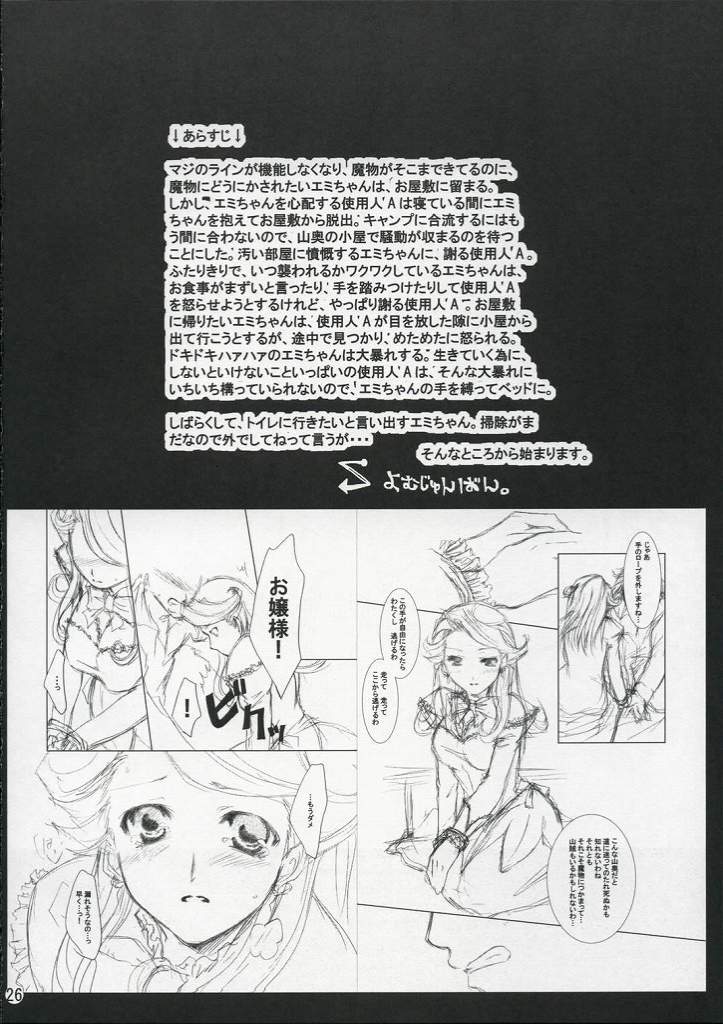 ↓あらすじ↓
マジのラインが機能しなくなり、魔物がそこまできてるのに、
魔物にどうにかされたいエミちゃんは、お屋敷に留まる。
しかし、エミちゃんを心配する使用人'A'は寝ている間にエミ
ちゃんを抱えてお屋敷から脱出。キャンプに合流するにはも
う間に合わないので、山奥の小屋で騒動が収まるのを待つ
ことにした。汚い部屋に憤慨するエミちゃんに、謝る使用人'A'。
ふたりきりで、いつ襲われるかワクワクしているエミちゃんは、
お食事がまずいと言ったり、手を踏みつけたりして使用人'A'
を怒らせようとするけれど、やっぱり謝る使用人'A'。お屋敷
に帰りたいエミちゃんは、使用人'A'が目を放した隙に小屋から
出て行こうとするが、途中で見つかり、めためたに怒られる。
ドキドキハァハァのエミちゃんは大暴れする。生きていく為に、
しないといけないこといっぱいの使用人'A'は、そんな大暴れに
いちいち構っていられないので、エミちゃんの手を縛ってベッドに。
しばらくして、トイレに行きたいと言い出すエミちゃん。掃除がま
だなので外でしてねって言うが・・・
そんなところから始まります。
よむじゅんばん。
じゃあ
手のロープを外しますね…
この手が自由になったら
わたくし　逃げるわ
走って　走って
ここから逃げるわ
こんな山奥だと
道に迷ってのたれ死ぬかも
知れないわね
それとも
それこそ魔物につかまって…
山賊もいるかもしれないわ…
お嬢様！
！
ビクッ
…っ
…もうダメ
漏れそうなの…っ
早く…っ！
26